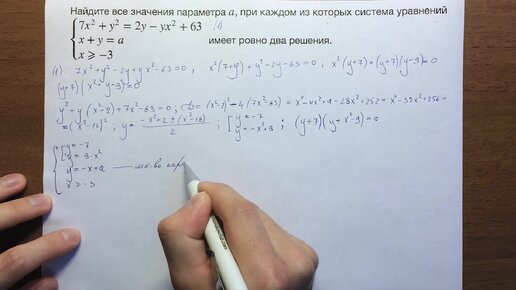 Найдите все значения параметра a, при каждом из которых система уравнений
{ 7x² + y² = 2y − yx² + 63 (1)
x + y = a имеет ровно два решения.
x ⩾ −3
(1): 7x²+y²-2y+yx²-63=0 ; x²(7+y)+y²-2y-63=0 ; x²(y+7)+(y+7)(y-9)=0
(y+7)(x²+y-9)=0
y²+y(x²-2)+7x²-63=0 ; D=(x²-2)²-4(7x²-63)=x⁴-4x²+4-28x²+252=x⁴-32x²+256=
=(x²-16)² ; y=(-x²+2±(x²-16))/2 ; [ y=-7 ; (y+7)(y+x²-9)=0
y=-x²+9
{ [ y=-7
y=9-x²
y=-x+a — мн-во пар
x⩾-3